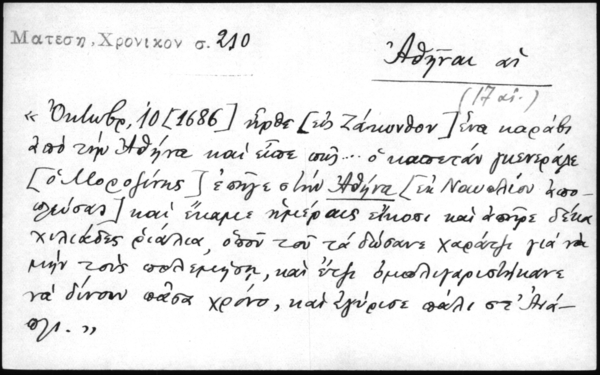 Ματεση, Χρονικον σ. 210
Ἀθῆναι αἱ
(17 αἰ.)
« Ὀκτωβρ, 10 [1686] ἦρθε [εἰς Ζάκυνθον] ἕνα καράβι
ἀπό τήν Ἀθήνα καί εἶπε πῶς... ὁ καπετάν γκενεράλε
[ὁ Μοροζίνης] ἐπῆγε στήν Ἀθήνα [ἐκ Ναυπλίου ἀπο-
πλεύσας] καί ἔκαμε ἡμέραις εἴκοσι καί ἀπῆρε δέκα
χιλιάδες ριάλια, ὁποῦ τοῦ τά δώσανε χαράτζι γιά νά
μήν τούς πολεμήση, καί ἔτζι ὀμπλιγαριστήκανε
νά δίνουν πᾶσα χρόνο, καί ἐγύρισε πάλι στ' Ἀνά-
πλι. »